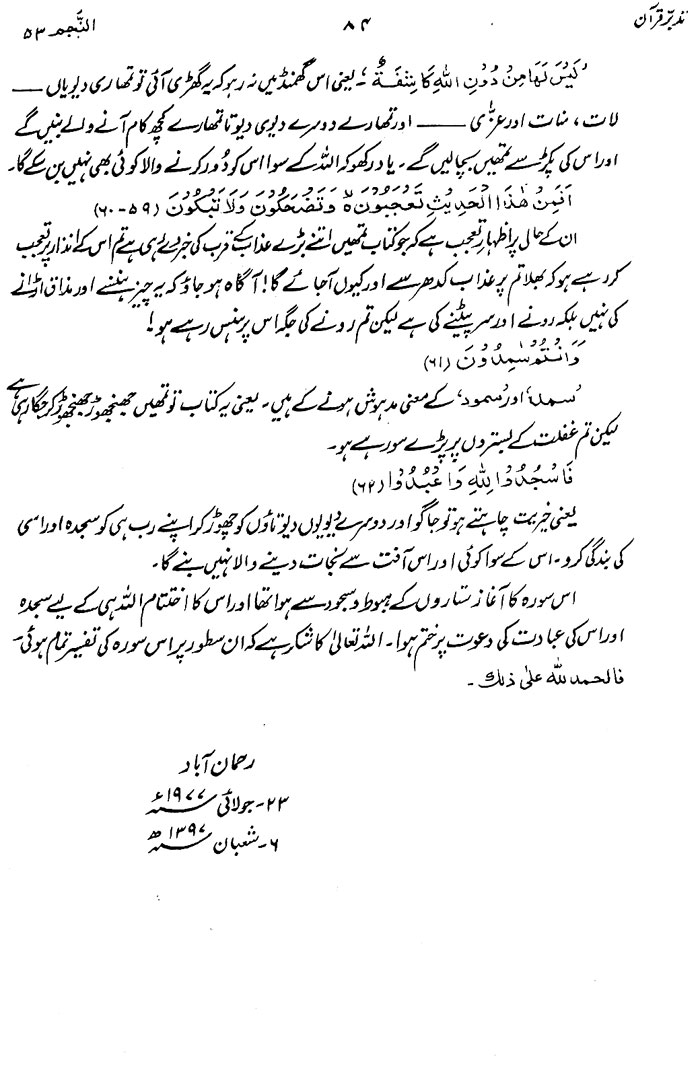 تدبرِ قرآن ۸۴ النّجم ۵۳
’لَیْسَ لَہَا مِنْ دُوْنِ اللہِ کَاشِفَۃٌ‘، یعنی اس گھمنڈ میں نہ رہو کہ یہ گھڑی آئی تو تمھاری دیویاں ——
لات، منات اور عزّٰی —— اور تمھارے دوسرے دیوی دیوتا تمھارے کچھ کام آنے والے بنیں گے
اور اس کی پکڑ سے تمھیں بچا لیں گے۔ یاد رکھو کہ اللہ کے سوا اس کو دُور کرنے والا کوئی بھی نہیں بن سکے گا۔
اَفَمِنْ ھٰذَا الْحَدِیْثِ تَعْجَبُوْنَ ہ وَتَضْحَکُوْنَ وَلَا تَبْکُوْنَ (۵۹-۶۰)
ان کے حال پر اظہارِ تعجب ہے کہ جو کتاب تمھیں اتنے بڑے عذاب کے قرب کی خبر دے رہی ہے تم اس کے انذار پر تعجب
کر رہے ہو کہ بھلا تم پر عذاب کدھر سے اور کیوں آ جائے گا! آگاہ ہو جاؤ کہ یہ چیز ہنسنے اور مذاق اڑانے
کی نہیں بلکہ رونے اور سر پیٹنے کی ہے لیکن تم رونے کی جگہ اس پر ہنس رہے ہو!
وَاَنْتُمْ سٰمِدُوْنَ (۶۱)
’سمد‘ اور ’سُمود‘ کے معنی مدہوش ہونے کے ہیں۔ یعنی یہ کتاب تو تمھیں جھنجھوڑ جھنجھوڑ کر جگا رہی ہے
لیکن تم غفلت کے بستروں پر پڑے سو رہے ہو۔
فَاسْجُدُوْا لِلہِ وَاعْبُدُوْا (۶۲)
یعنی خیریت چاہتے ہو تو جاگو اور دوسرے دیویوں دیوتاؤں کو چھوڑ کر اپنے رب ہی کو سجدہ اور اسی
کی بندگی کرو۔ اس کے سوا کوئی اور اس آفت سے نجات دینے والا نہیں بنے گا۔
اس سورہ کا آغاز ستاروں کے ہبوط و سجود سے ہوا تھا اور اس کا اختتام اللہ ہی کے لیے سجدہ
اور اس کی عبادت کی دعوت پر ختم ہوا۔ اللہ تعالیٰ کا شکر ہے کہ ان سطور پر اس سورہ کی تفسیر تمام ہوئی۔
فالحمد للہ علیٰ ذلک۔
رحمان آباد
۲۳۔ جولائی ۱۹۷۷ء
۶۔ شعبان ۱۳۹۷ھ